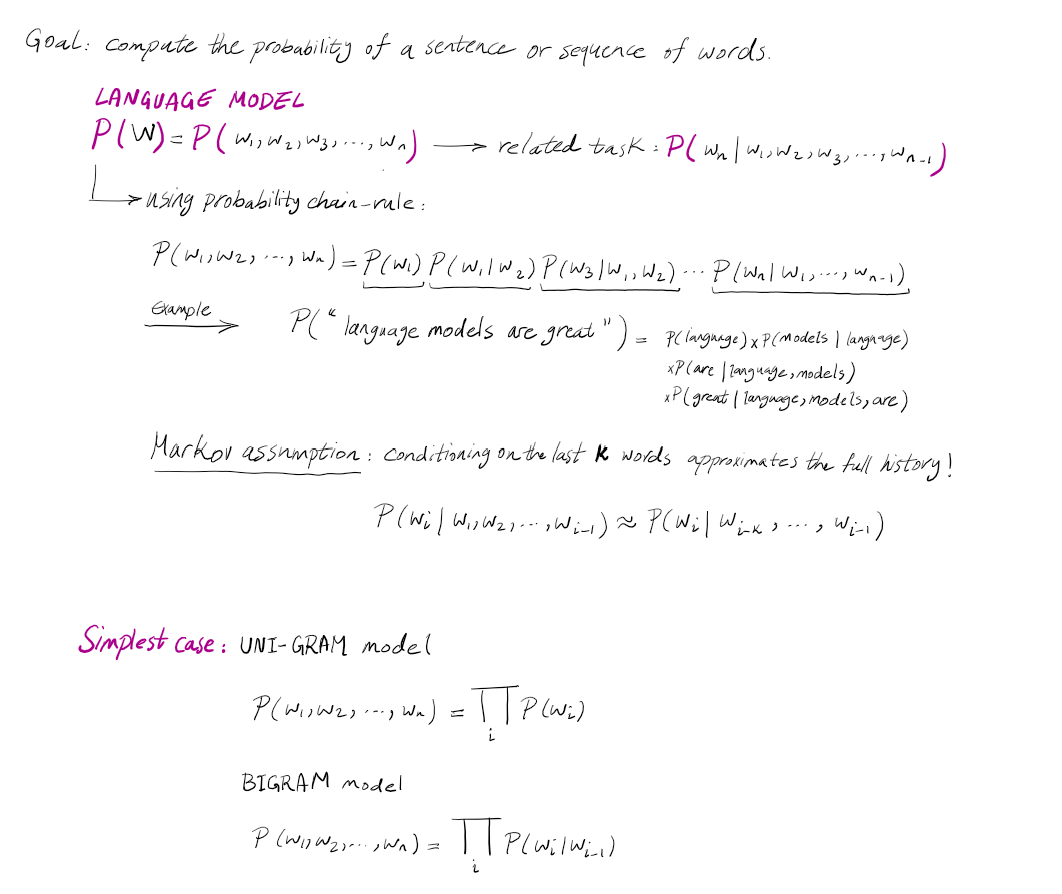 Goal: compute the probability of a sentence or sequence of words.
LANGUAGE MODEL
P(W) = P(w₁, w₂, w₃, ..., wₙ) → related task: P(wₙ | w₁, w₂, w₃, ..., wₙ₋₁)
→ using probability chain-rule:
P(w₁, w₂, ..., wₙ) = P(w₁) P(w₁ | w₂) P(w₃ | w₁, w₂) ... P(wₙ | w₁, ..., wₙ₋₁)
Example → P("language models are great") = P(language) x P(models | language)
x P(are | language, models)
x P(great | language, models, are)
Markov assumption: conditioning on the last K words approximates the full history!
P(wᵢ | w₁, w₂, ..., wᵢ₋₁) ≈ P(wᵢ | wᵢ₋ₖ, ..., wᵢ₋₁)
Simplest case: UNI-GRAM model
P(w₁, w₂, ..., wₙ) = ∏ᵢ P(wᵢ)
BIGRAM model
P(w₁, w₂, ..., wₙ) = ∏ᵢ P(wᵢ | wᵢ₋₁)